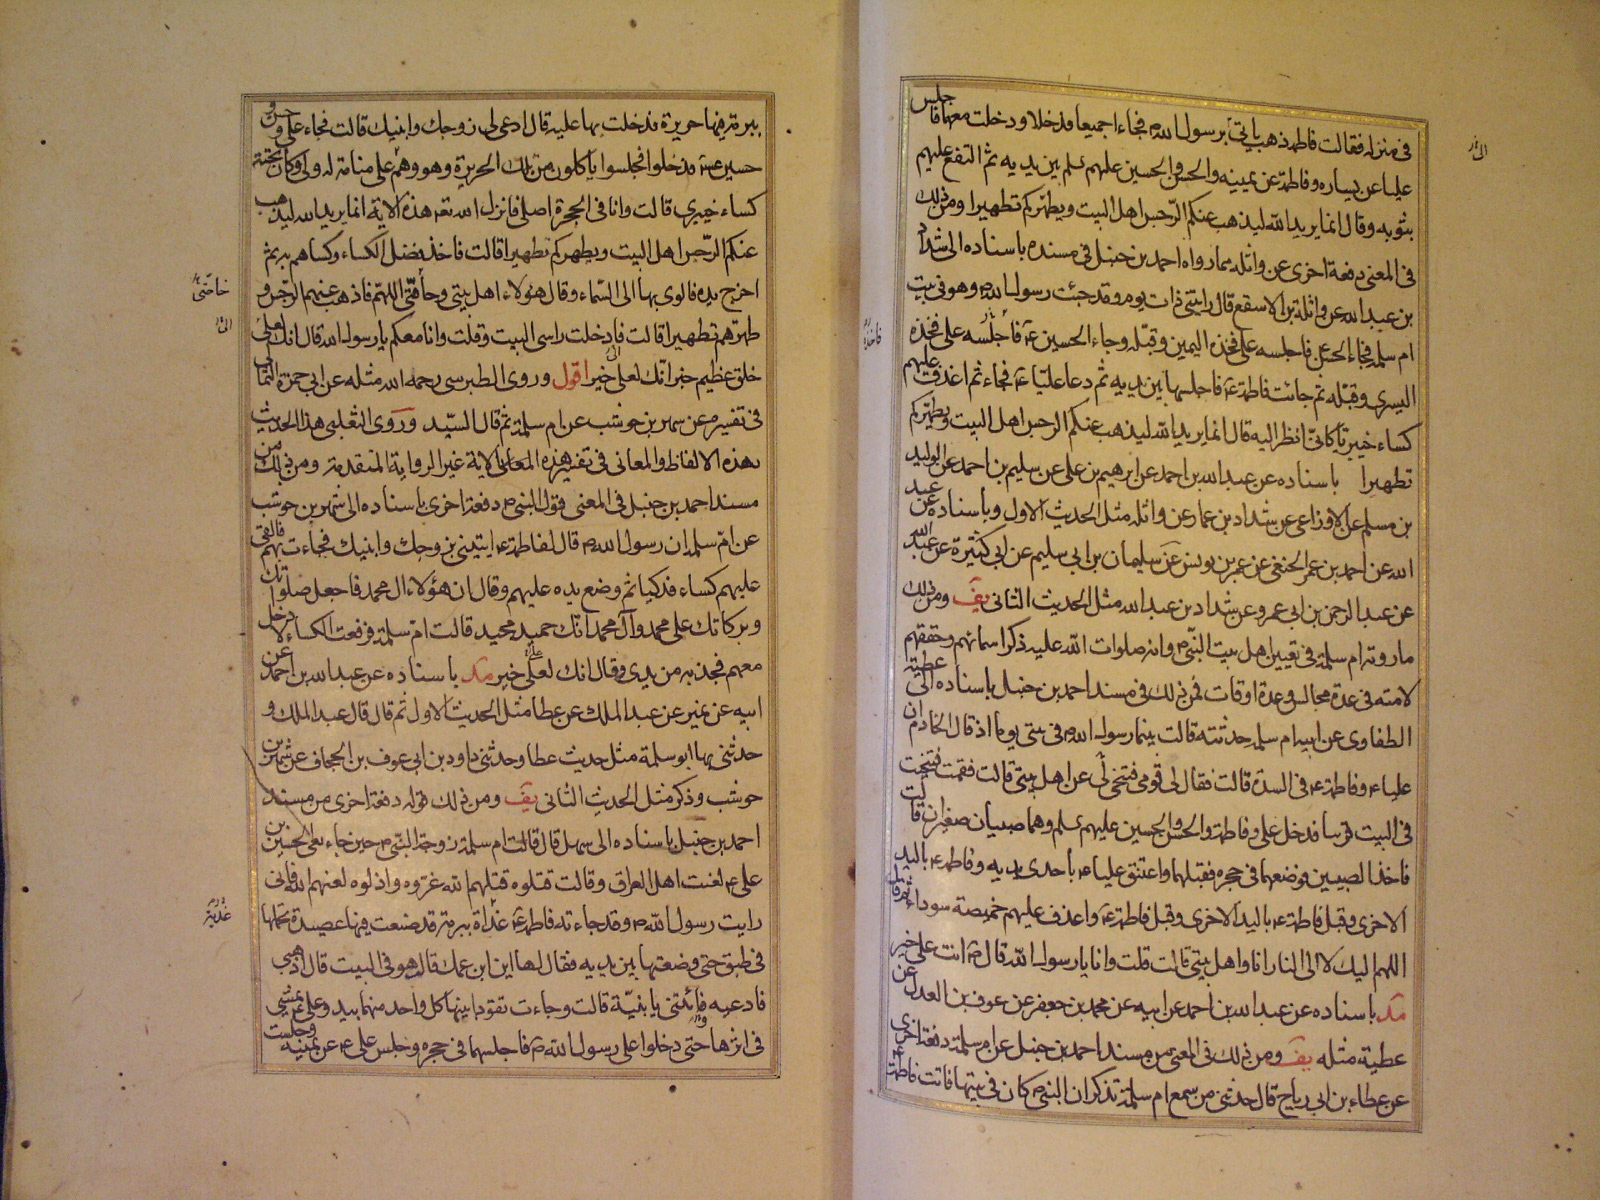 في منزله فقالت فاطمة ذهب يأتي برسول الله ص فجاءا جميعا فدخلا ودخلت معهما فاجلس
عليا عن يساره وفاطمة عن يمينه والحسن والحسين عليهم السلم بين يديه ثم التفع عليهم
بثوبه وقال انما يريد الله ليذهب عنكم الرجس اهل البيت ويطهركم تطهيرا ومن ذلك
في المعنى دفعة اخرى عن واثلة بما رواه احمد بن حنبل في مسنده باسناده الى شداد
بن عبد الله عن واثلة بن الاسقع قال رايتني ذات يوم وقد جئت رسول الله ص وهو في بيت
ام سلمة فجاء الحسن فاجلسه على فخذه اليمين وقبله وجاء الحسين ع فاجلسه على فخذه
اليسرى وقبله ثم جائت فاطمة ع فاجلسها بين يديه ثم دعا عليا ع فجاء ثم اغدف عليهم
كساء خيبريا كاني انظر اليه قال انما يريد الله ليذهب عنكم الرجس اهل البيت ويطهركم
تطهيرا باسناده عن عبد الله بن احمد عن ابرهيم بن علي عن سليم بن احمد عن الوليد
بن مسلم عن الاوزاعي عن شداد بن عمار عن واثلة مثل الحديث الاول وباسناده عن عبد
الله عن احمد بن عمر الحنفي عن عمر بن يونس عن سليمان بن ابي سليم عن ابي كثيرة عن عبد الله
عن عبد الرحمن بن ابي عمرو عن شداد بن عبد الله مثل الحديث الثاني يف ومن ذلك
ما روته ام سلمة في تعيين اهل بيت النبي ص وانه صلوات الله عليه ذكر اسمائهم وحققهم
لامته في عدة مجالس وعدة اوقات فمن ذلك في مسند احمد بن حنبل باسناده الى عطية
الطفاوي عن ابيه ام سلمة حدثته قالت بينما رسول الله ص في بيتي يوما اذ قال الخادم ان
عليا ع وفاطمة ع في السدة قالت فقال لي قومي فتنحي لي عن اهل بيتي قالت فقمت فتنحت
في البيت قريبا فدخل علي وفاطمة والحسن والحسين عليهم السلم وهما صبيان صغيران قالت
فاخذ الصبيين فوضعهما في حجره فقبلهما واعتنق عليا ع باحدى يديه وفاطمة ع باليد
الاخرى وقبل فاطمة ع باليد الاخرى وقبل فاطمة ع واغدف عليهم خميصة سوداء ثم قال
اللهم اليك لا الى النار انا واهل بيتي قالت قلت وانا يا رسول الله قال ص انت على خير
مد باسناده عن عبد الله بن احمد عن ابيه عن محمد بن جعفر عن عوف بن العدل عن
عطية مثله يف ومن ذلك في المعنى من مسند احمد بن حنبل عن ام سلمة دفعة اخرى
عن عطاء بن ابي رباح قال حدثني من سمع ام سلمة تذكر ان النبي ص كان في بيتها فاتت فاطمة ع
فاخذه
ببرمة فيها حريرة فدخلت بها عليه قال ادعى لي زوجك وابنيك قالت فجاء علي وحسن و
حسين ع فدخلوا فجلسوا ياكلون من تلك الحريرة وهو وهم على منامة له ولي وكان تحته
كساء خيبري قالت وانا في الحجرة اصلي فانزل الله تعه هذه الاية انما يريد الله ليذهب
عنكم الرجس اهل البيت ويطهركم تطهيرا قالت فاخذ فضل الكساء وكساهم به ثم
اخرج يده فالوى بها الى السماء وقال هؤلاء اهل بيتي وحامتي اللهم فاذهب عنهم الرجس و
طهرهم تطهيرا قالت فادخلت راسي البيت وقلت وانا معكم يا رسول الله قال انك لعلى
خلق عظيم خبر انك لعلى خير اقول وروى الطبرسي رحمه الله مثله عن ابي حمزة الثمالي
في تفسيره عن سهر بن حوشب عن ام سلمة ثم قال السيد وروى الثعلبي هذا الحديث
بهذه الالفاظ والمعاني في تفسير هذه المعاني الاية غير الرواية المتقدمة ومن ذلك من
مسند احمد بن حنبل في المعنى قول النبي ص دفعة اخرى باسناده الى شهر بن حوشب
عن ام سلمة ان رسول الله ص قال لفاطمة ع ايتيني بزوجك وابنيك فجاءت بهم فالقى
عليهم كساء فدكيا ثم وضع يده عليهم وقال ان هؤلاء ال محمد فاجعل صلواتك
وبركاتك على محمد وآل محمد انك حميد مجيد قالت ام سلمة فرفعت الكساء لادخل
معهم فجذبه من يدي وقال انك لعلى خير مد باسناده عن عبد الله بن احمد عن
ابيه عن نمير عن عبد الملك عن عطا مثل الحديث الاول ثم قال قال عبد الملك و
حدثني بها ابو سلمة مثل حديث عطا وحدثني داود بن ابي عوف بن الحجاف عن شهر بن
حوشب وذكر مثل الحديث الثاني يف ومن ذلك قوله دفعة اخرى من مسند
احمد بن حنبل باسناده الى سهل قال قالت ام سلمة زوجة النبي ص حين جاء نعى الحسين بن
علي ع لعنت اهل العراق وقالت قتلوه قتلهم الله غروه واذلوه لعنهم الله فاني
رايت رسول الله ص وقد جاءته فاطمة ع غداة ببرمة قد صنعت فيها عصيدة تحملها
في طبق حتى وضعتها بين يديه فقال لها اين ابن عمك قال هو في البيت قال اذهبي
فادعيه وائتني بابنيه قالت وجاءت تقود ابنيها كل واحد منهما بيد وعلي ع يمشي
في اثرها حتى دخلوا على رسول الله ص فاجلسهما في حجره وجلس علي ع عن يمينه وجلست
خاصتي
غدية